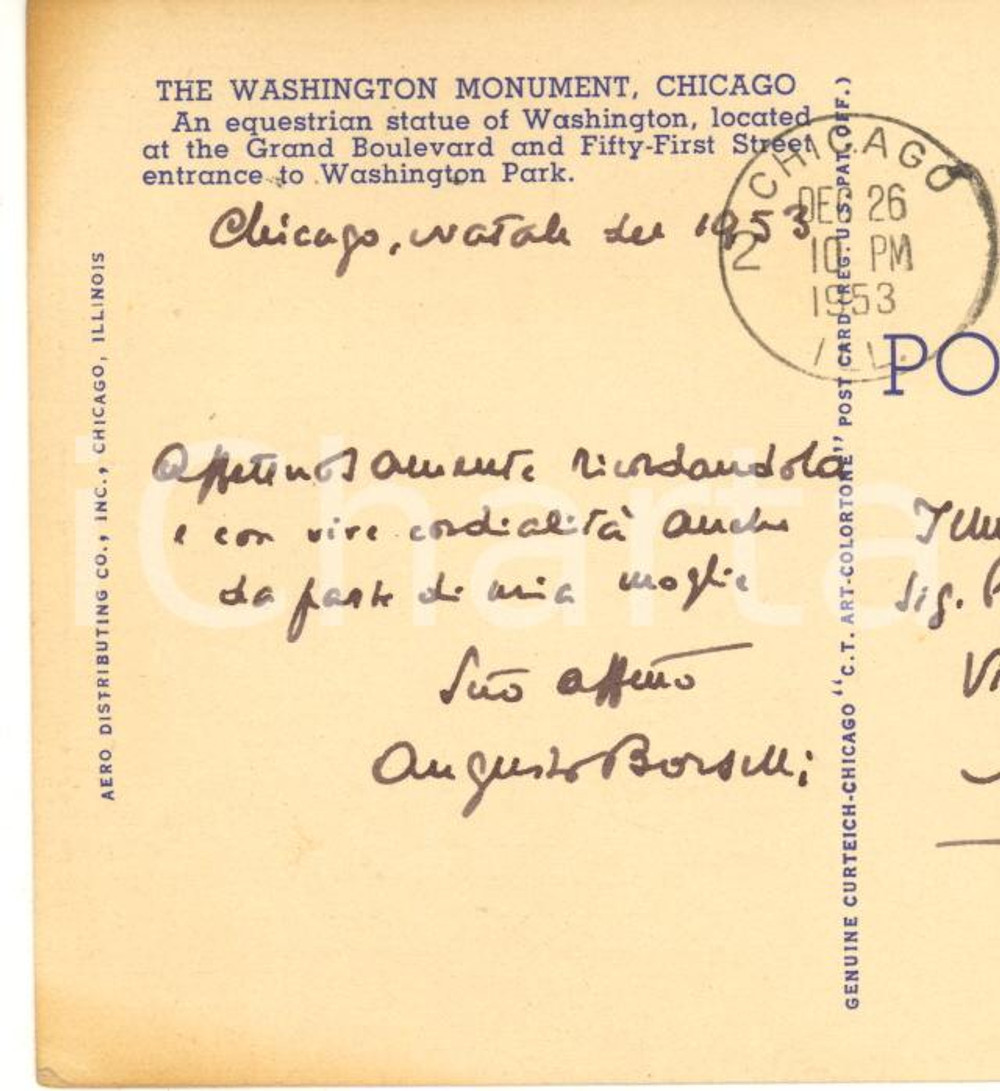 THE WASHINGTON MONUMENT, CHICAGO
An equestrian statue of Washington, located
at the Grand Boulevard and Fifty-First Street
entrance to Washington Park.
Chicago, natale del 1953
CHICAGO
2
DEC 26
10 PM
1953
ILL.
AERO DISTRIBUTING CO., INC., CHICAGO, ILLINOIS
Affettuosamente ricordandola
e con vive cordialità anche
da parte di mia moglie
Suo affmo
Augusto Borselli
GENUINE CURTEICH-CHICAGO "C.T. ART-COLORTONE" POST CARD (REG. U.S. PAT. OFF.)
PO
Sig.
iCharta